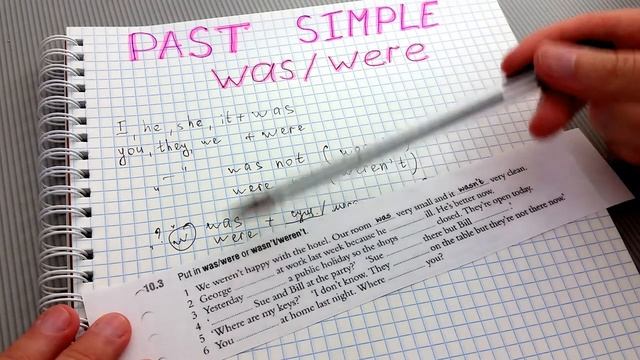 PAST SIMPLE
was/were
I, he, she, it + was
you, they, we + were
"—" was not (
were weren't)
? was
were +
10.3 Put in was/were or wasn't/weren't.
1 We weren't happy with the hotel. Our room was very small and it wasn't very clean.
2 George ______ at work last week because he ______ ill. He's better now.
3 Yesterday ______ a public holiday so the shops ______ closed. They're open today.
4 '______ Sue and Bill at the party?' 'Sue ______ there but Bill ______
5 'Where are my keys?' 'I don't know. They ______ on the table but they're not there now.'
6 You ______ at home last night. Where ______ you?